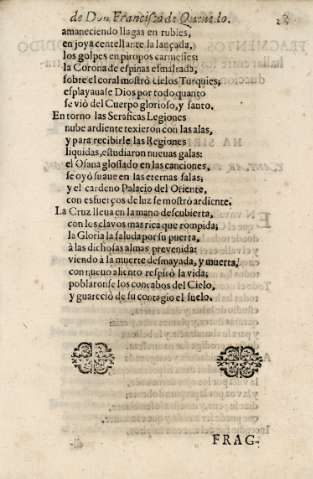 de Don Francisco de Quevedo.
amaneciendo llagas en rubies,
en joya centellante la lançada,
los golpes en piropos carmesies:
la Corona de espinas esmaltada,
sobre el coral mostró cielos Turquies,
esplayauase Dios por todo quanto
se vió del Cuerpo glorioso, y santo.
En torno las Seraficas Legiones
nube ardiente texieron con las alas,
y para recibirle las Regiones
liquidas, estudiaron nueuas galas:
el Osana glossado en las canciones,
se oyó suaue en las eternas salas,
y el cardeno Palacio del Oriente,
con esfuerços de luz se mostró ardiente.
La Cruz lleua en la mano descubierta,
con los clavos mas rica que rompida;
la Gloria la saluda por su puerta,
à las dichosas almas preuenida:
viendo à la muerte desmayada, y muerta,
con nueuo aliento respiró la vida;
poblaronse los concabos del Cielo,
y guareció de su contagio el suelo.
FRAG-